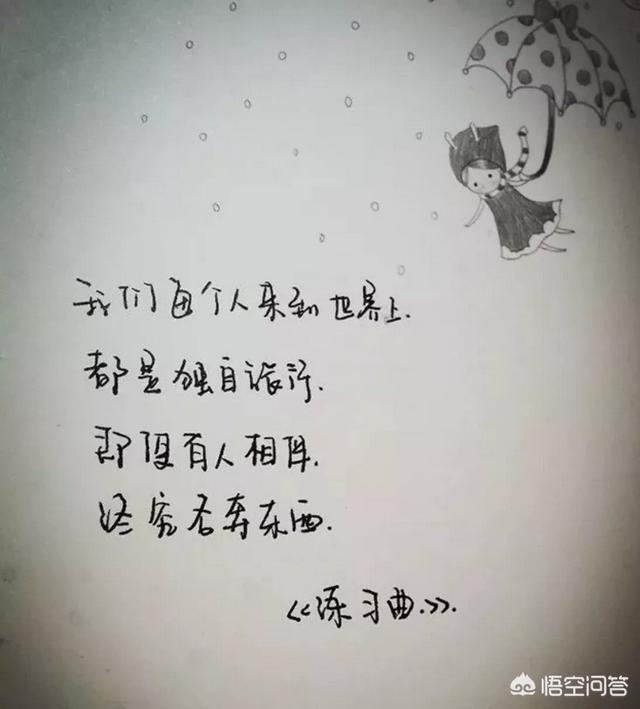 我们每个人来到世界上.
都是独自旅行.
即使有人相伴.
终究各奔东西.
《练习曲.》.
悟空问答